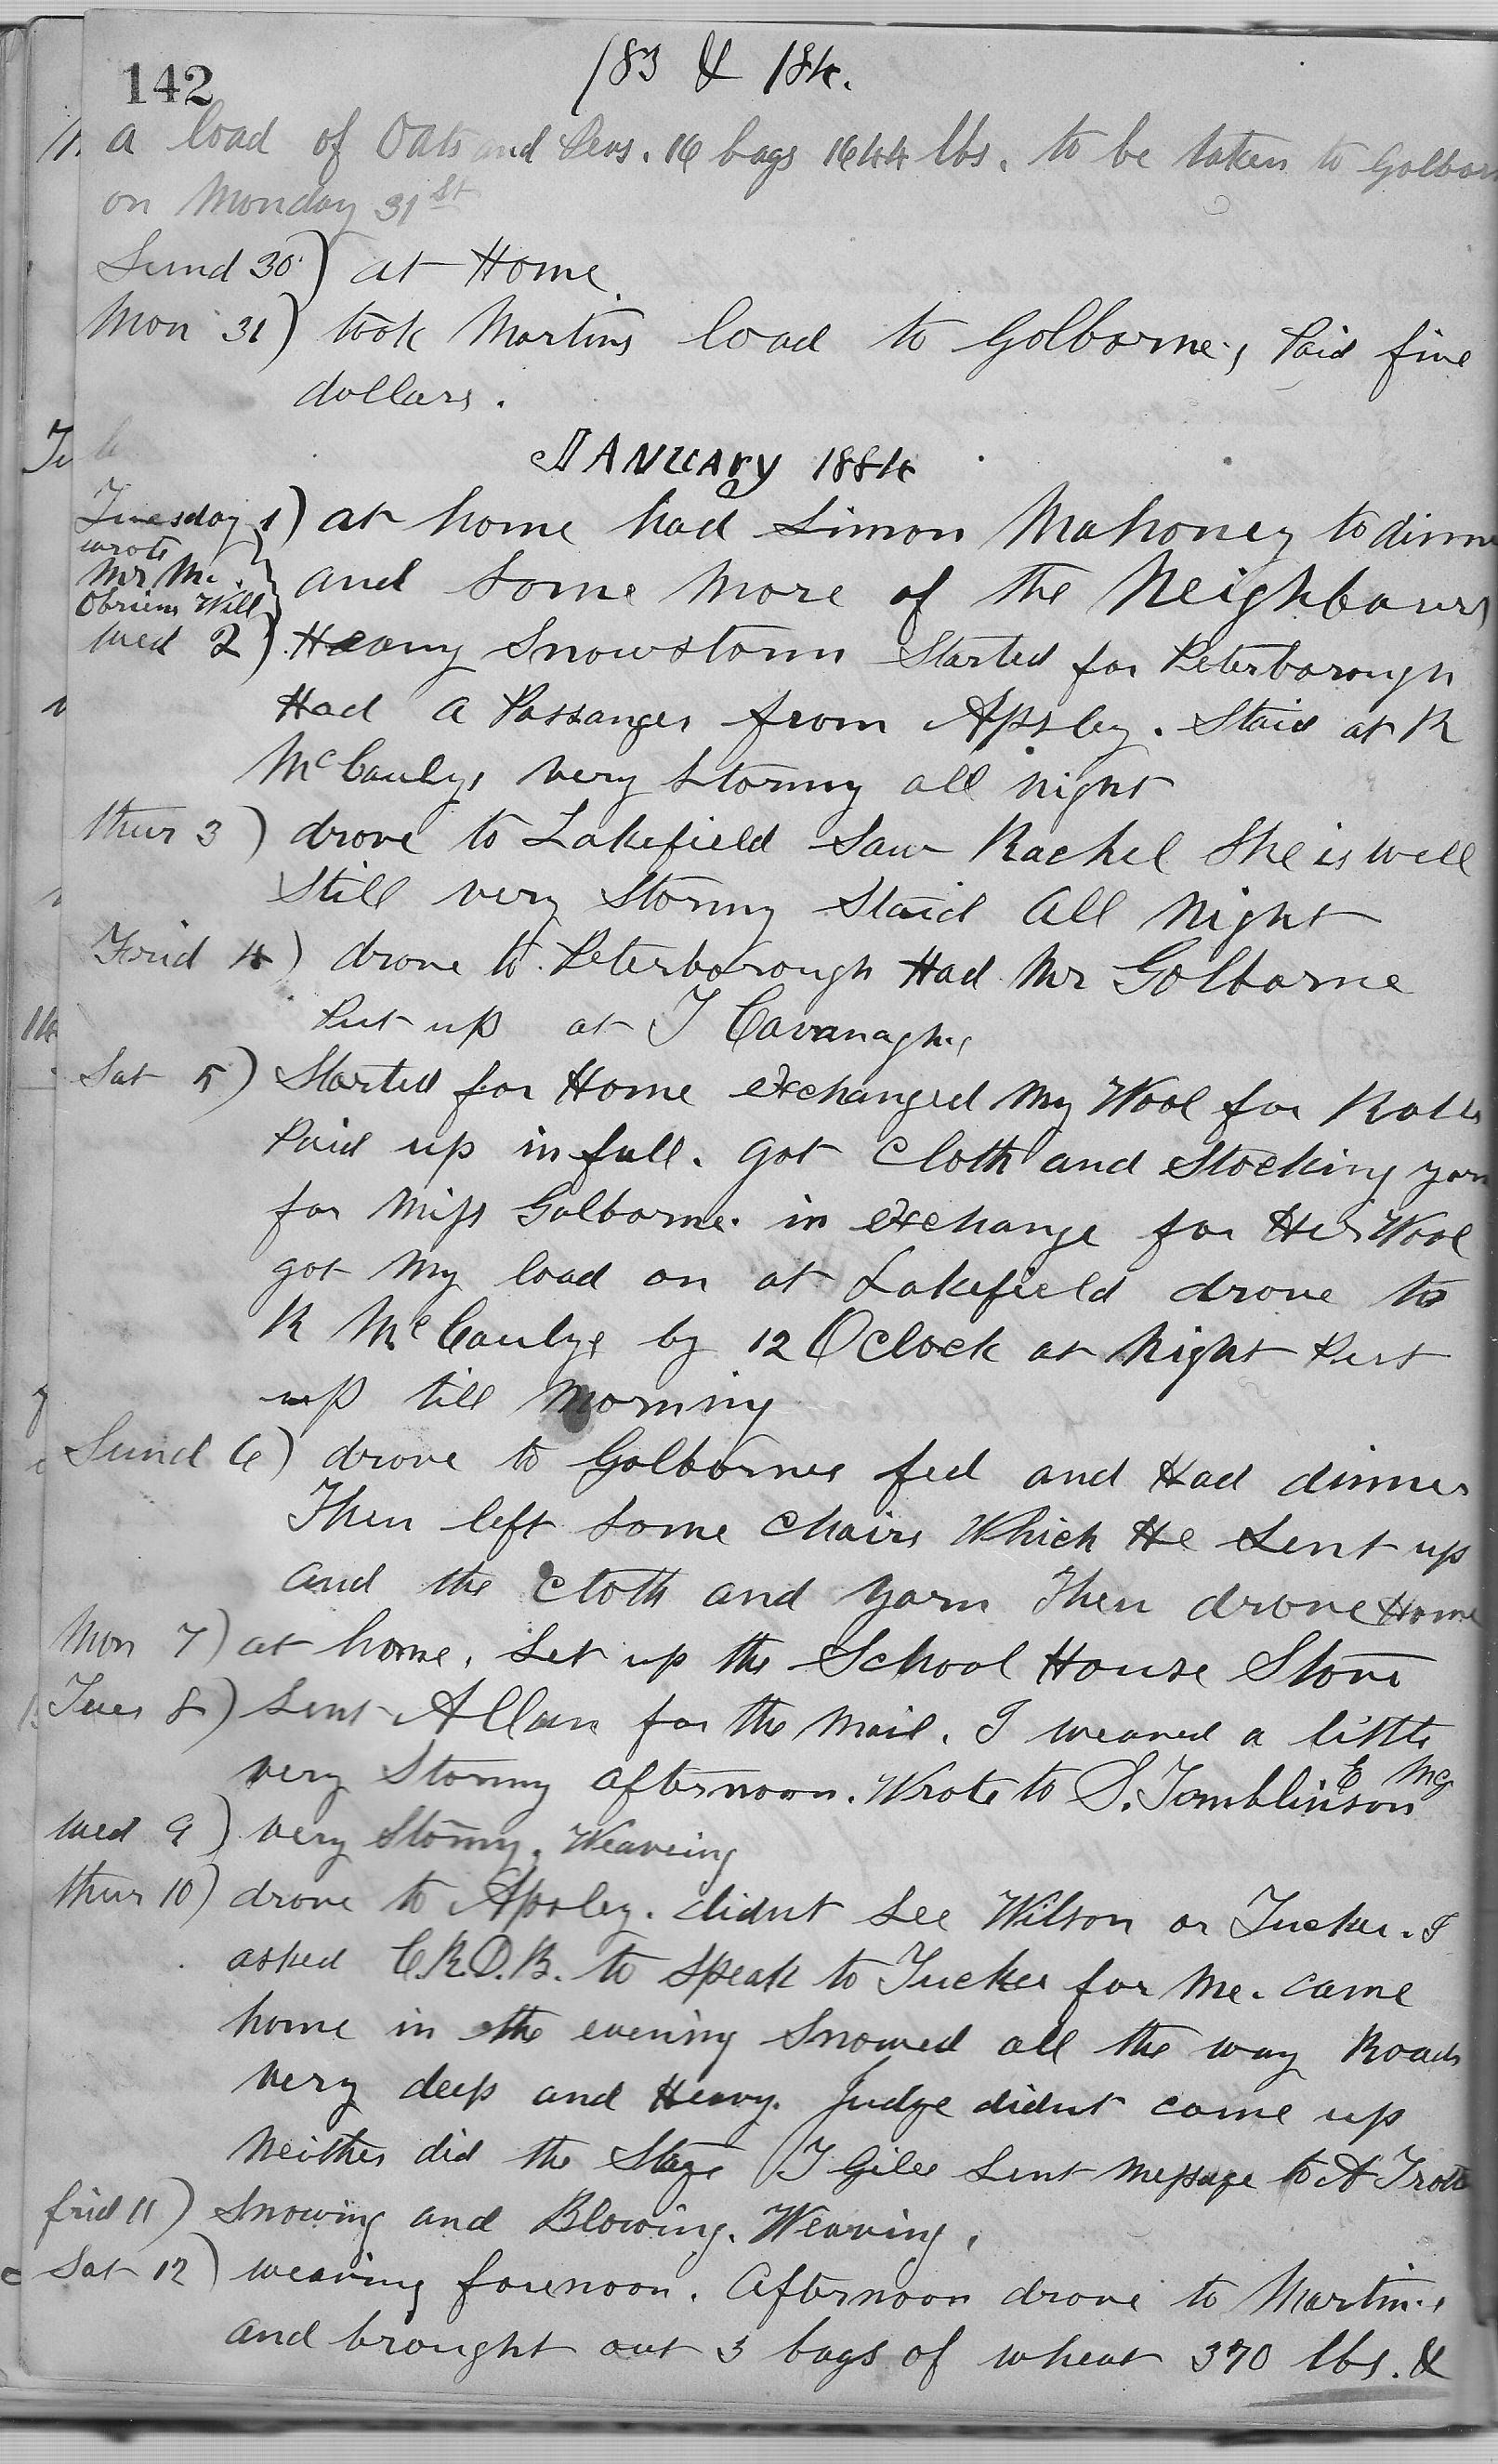 142
183 & 184.
a load of Oats and Peas. 16 bags 1644 lbs. to be taken to Golborn
on Monday 31st
Sund 30) at Home.
Mon 31) took Martins load to Golborne, Paid five
dollars.
JANUARY 1884
Tuesday 1) at home had Simon Mahoney to dinn
wrote
Mr Mc
Obriens Will
and Some More of the Neighbours
Wed 2) Heavy Snowstorm Started for Peterborough
Had a Passanger from Apsley. Staid at R
McCaulys very Stormy all night
thur 3) drove to Lakefield Saw Rachel She is well
Still very Stormy Staid all Night
Frid 4) drove to Peterborough Had Mr Golborne
Put up at J Cavanaghs
Sat 5) Started for Home exchanged My Wool for Rolls
Paid up in full. got Cloth and Stocking yarn
for Miss Golborne. in exchange for Her Wool
got My load on at Lakefield drove to
R McCaulys by 12 OClock at Night Put
up till Morning
Sund 6) drove to Golbornes fed and Had dinner
Then left Some Chairs Which He Sent up
and the Cloth and Yarn Then drove Home
Mon 7) at home. Set up the School House Stove
Tues 8) Sent Allan for the Mail. I weaved a little
very Stormy afternoon. Wrote to S. Tomblinson E McG
Wed 9) very Stormy. Weaveing
thur 10) drove to Apsley. didnt See Wilson or Tucker. I
asked C.R.D.B. to Speak to Tucker for Me. Came
home in the evening Snowed all the way Roads
very deep and Heavy. Judge didnt come up
Neither did the Stage J Giles Sent Message to A Trott
frid 11) Snowing and Blowing. Weaving.
Sat 12) weaving forenoon. Afternoon drove to Martins
and brought out 3 bags of wheat 370 lbs. &